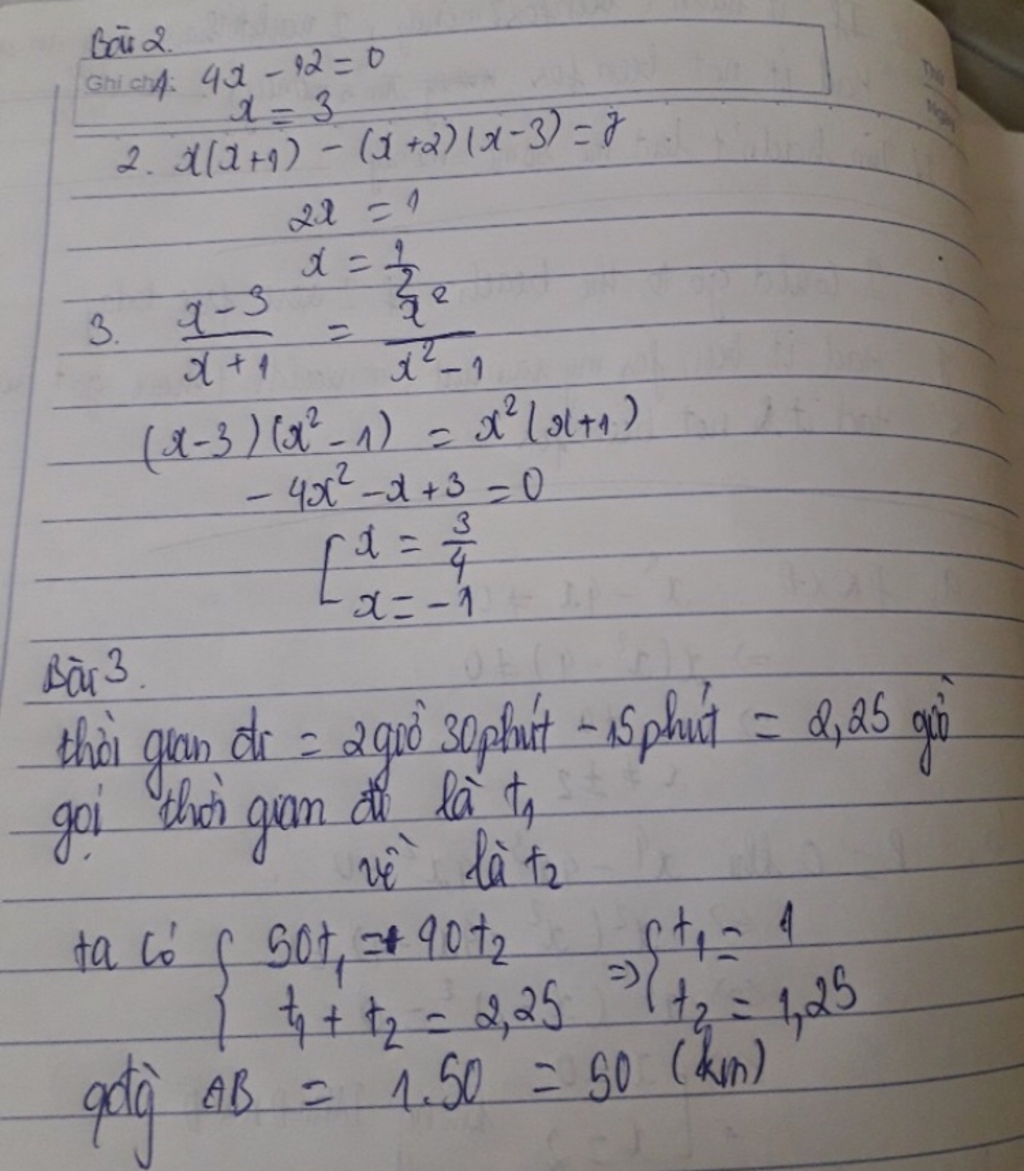 Bài 2.
Ghi chú: 1. 4x - 12 = 0
x = 3
2. x(x+1) - (x+2)(x-3) = 7
2x = 1
x = 1/2
3. (x-3)/(x+1) = x²/(x²-1)
(x-3)(x²-1) = x²(x+1)
-4x² - x + 3 = 0
[ x = 3/4
x = -1
Thứ
Ngày
Bài 3.
thời gian đi = 2 giờ 30 phút - 15 phút = 2,25 giờ
gọi thời gian đi là t₁
về là t₂
ta có { 50t₁ = 40t₂ => { t₁ = 1
t₁ + t₂ = 2,25 t₂ = 1,25
qđg AB = 1.50 = 50 (km)